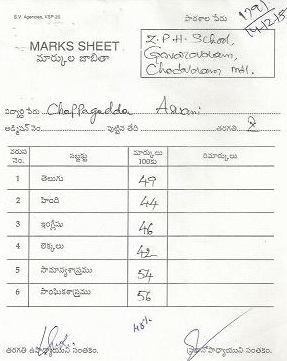 1791
14-12-15
S.V. Agencies, VSP-20
పాఠశాల పేరు
MARKS SHEET
మార్కుల జాబితా
Z.P.H. School,
Govarovaram,
Chodavaram mdl.
విద్యార్థి పేరు Chappagadda Asvani
అడ్మిషన్ నెం. పుట్టిన తేది తరగతి 8
వరుస నెం. సబ్జక్టు మార్కులు 100కు రిమార్కులు
1 తెలుగు 49
2 హింది 44
3 ఇంగ్లీషు 46
4 లెక్కలు 42
5 సామాన్యశాస్త్రము 54
6 సాంఘికశాస్త్రము 56
48%
తరగతి ఉపాధ్యాయుని సంతకం. ప్రధానోపాధ్యాయుని సంతకం.